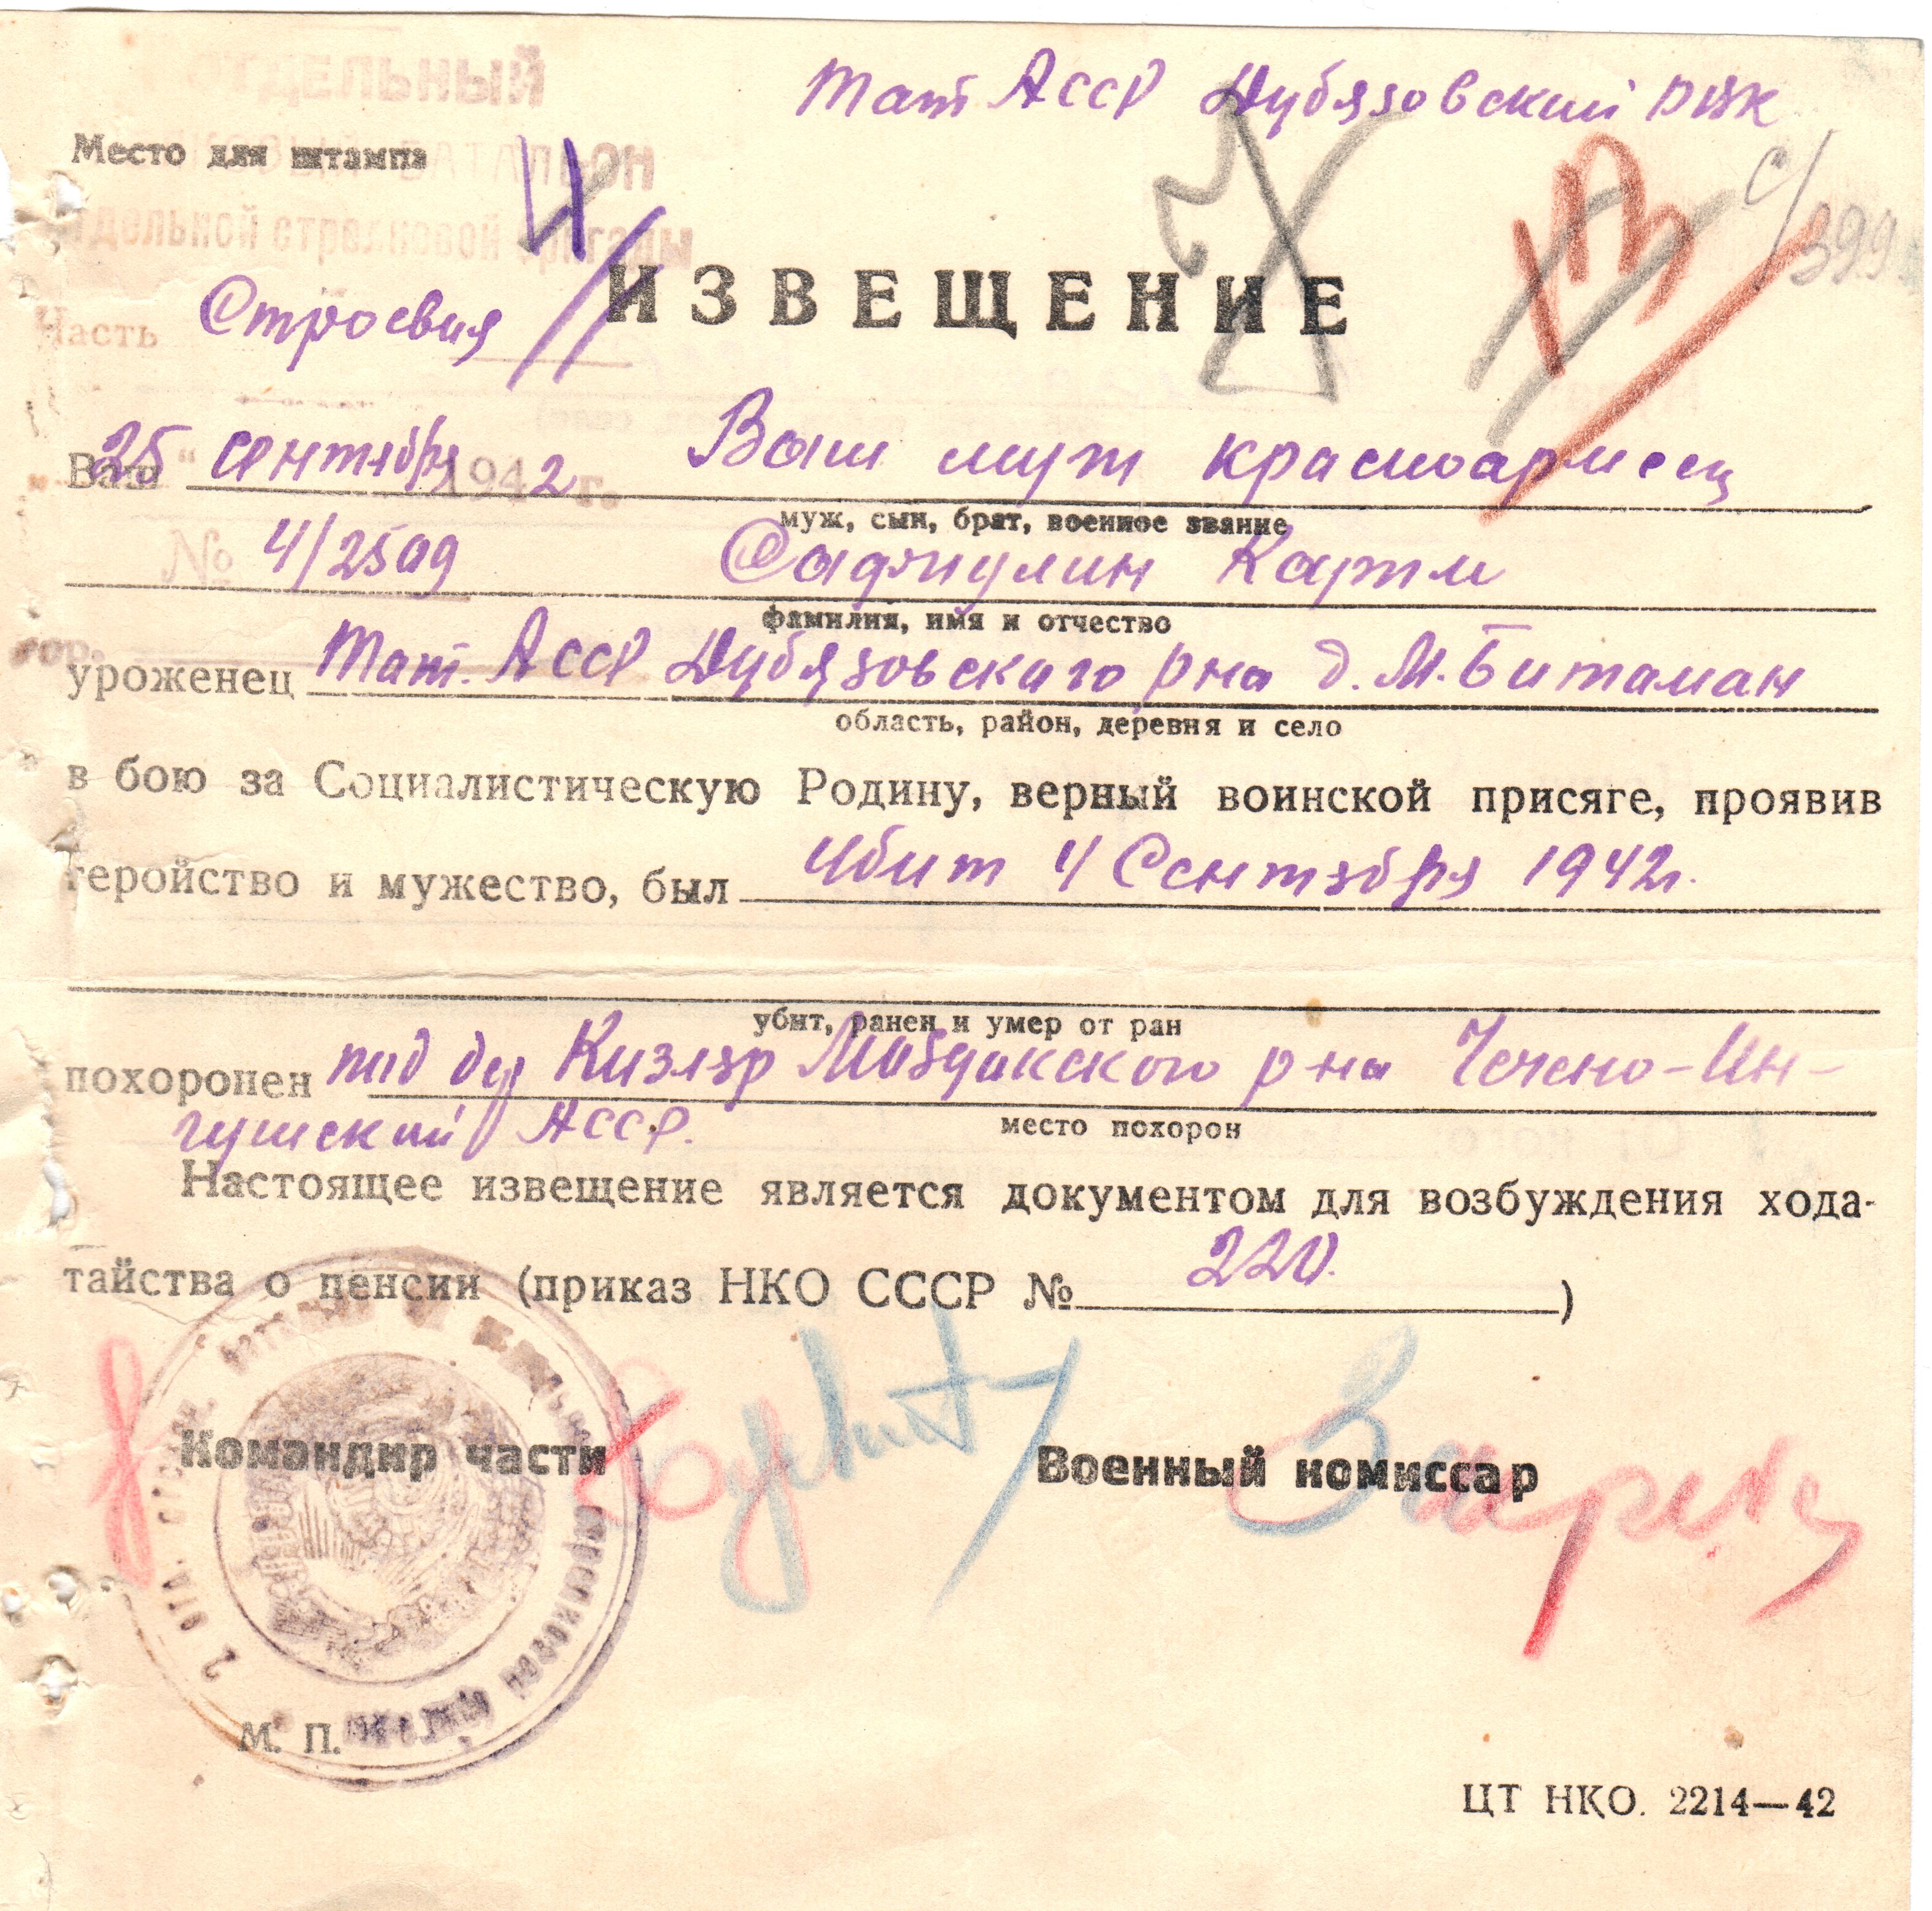 ОТДЕЛЬНЫЙ
Тат АССР Дубязовский РВК
Место для штампа БАТАЛЬОН
отдельной стрелковой бригады
с/399
ИЗВЕЩЕНИЕ
Часть Строевая
Ваш 25 сентября 1942 г. Ваш муж красноармеец
муж, сын, брат, военное звание
№ 4/2509 Садриулин Карим
фамилия, имя и отчество
гор.
уроженец Тат. АССР Дубязовскаго рна д. М. Битаман
область, район, деревня и село
в бою за Социалистическую Родину, верный воинской присяге, проявив
геройство и мужество, был убит 4 Сентября 1942г.
убит, ранен и умер от ран
похоронен под д Кизляр Мабдакского р на Чечено-Ин-
гушский АССР.
место похорон
Настоящее извещение является документом для возбуждения хода-
тайства о пенсии (приказ НКО СССР № 220.)
Командир части Военный комиссар
стрелковой бригады
М. П.
ЦТ НКО. 2214—42